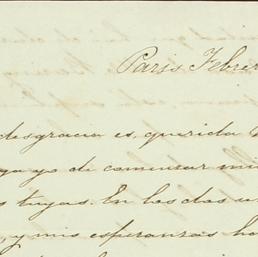 Paris Febrer
desgracia es, querida
ya yo de comenzar mi
s tuyas. En las dos u
, y mis esperanzas ha